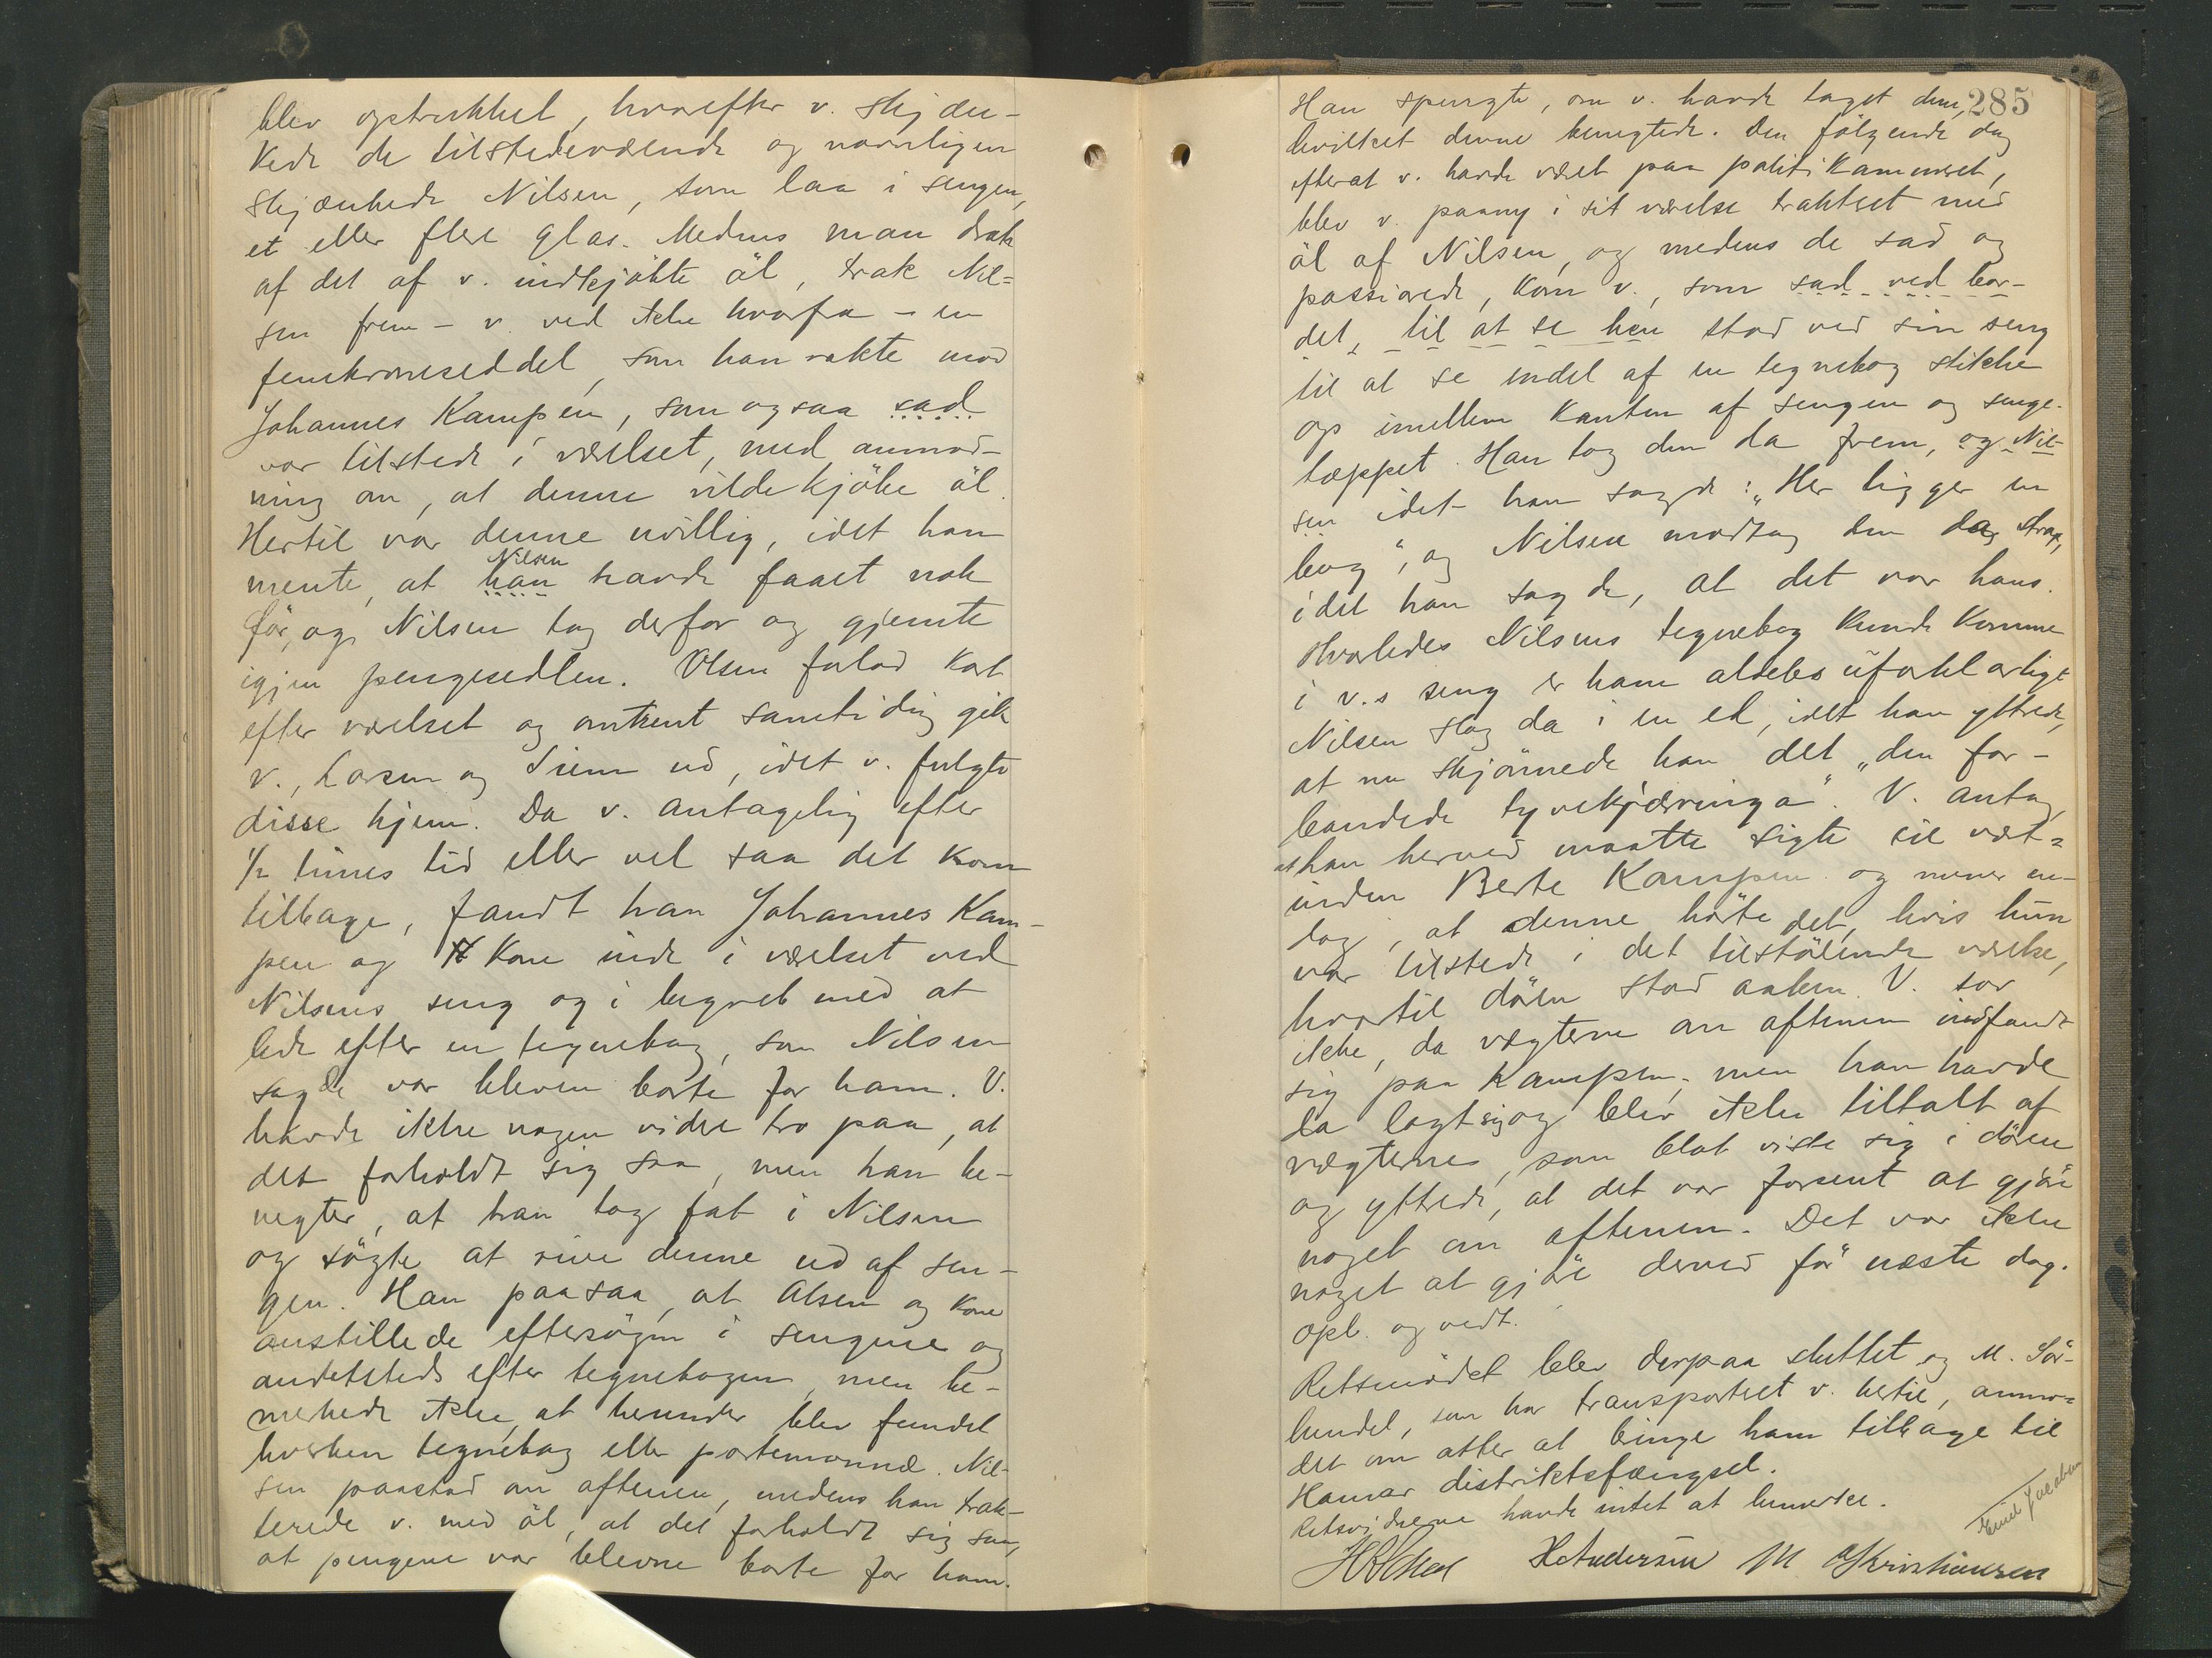 blev optrukket, hvorefter v. skjæn-
kede de tilstedeværende og navnligen
skjænkede Nilsen, som laa i sengen,
et eller flere glas. Medens man drak
af det af v. indkjøbte öl, trak Nil=
sen frem – v. ved ikke hvorfra – en
femkroneseddel, som han rakte mod
Johannes Kampen, som ogsaa sad
var tilstede i værelset, med anmod-
ning om, at denne vilde kjöbe öl.
Hertil var denne uvillig, idet han
Nilsen
mente, at han havde faaet nok
för, og Nilsen tog derfor og gjemte
igjen pengesedlen. Olsen forlod kort
efter værelset og omtrent samtidig gik
v., Larsen og Siem ud, idet v. fulgte
disse hjem. Da v. antagelig efter
1/2 times tid eller vel saa det kom
tilbage, fandt han Johannes Kam-
pen og Kone inde i værelset ved
Nilsens seng og i begreb med at
lede efter en tegnebog, som Nilsen
sagde var bleven borte for ham. V.
havde ikke nogen videre tro paa, at
det forholdt sig saa, men han be-
negter, at han tog fat i Nilsen
og sögte at rive denne ud af sen-
gen. Han paasaa, at Olsen og Kone
anstillede eftersögen i sengene og
andetsteds efter tegnebogen, men be-
merkede ikke, at herunder blev fundet
hverken tegnebog eller portemonnæ. Nil-
sen paastod om aftenen, medens han trak-
terede v. med öl, at det forholdt sig saa,
at pengene var blevne borte for ham.
285
Han spurgte, om v. havde taget dem,
hvilket denne benegtede. Den fölgende dag
efterat v. havde været paa politikammeret,
blev v. paany i sit værelse trakteret med
öl af Nilsen, og medens de sad og
passiarede, kom v., som sad ved bor-
det, til at se hen stod ved sin seng
til at se endel af en tegnebog stikke
op imellem kanten af sengen og senge-
tæppet. Han tog den da frem, og Nil-
sen idet han sagde: „Her ligger en
bog“, og Nilsen modtog den da strax,
idet han sagde, at det var hans.
Hvorledes Nilsens tegnebog kunde komme
i v.s seng er ham aldeles uforklarligt
Nilsen slog da i en ed, idet han yttrede,
at nu skjönnede han det „den for-
bandede tyvekjærringa“. V. antog,
at han herved maatte sigte til vært-
inden Berte Kampen og mener en-
dog, at denne hörte det, hvis hun
var tilstede i det tilstödende værelse,
hvortil dören stod aaben. V. sov
ikke, da vægterne om aftenen indfandt
sig paa Kampen, men han havde
da lagt sig og blev ikke tiltalt af
vægterne, som blot viste sig i dören
og yttrede, at det var forsent at gjöre
noget om aftenen. Det var ikke
noget at gjöre derved för næste dag.
Opl. og vedt.
Retsmödet blev derpaa sluttet og M. Sör-
lundet, som har transporteret v. hertil, anmo=
det om atter at bringe ham tilbage til
Hamar distriktsfængsel.
Retsvidnerne havde intet at bemerke.
Emil Jacobsen
H. Andersen M Kristiansen